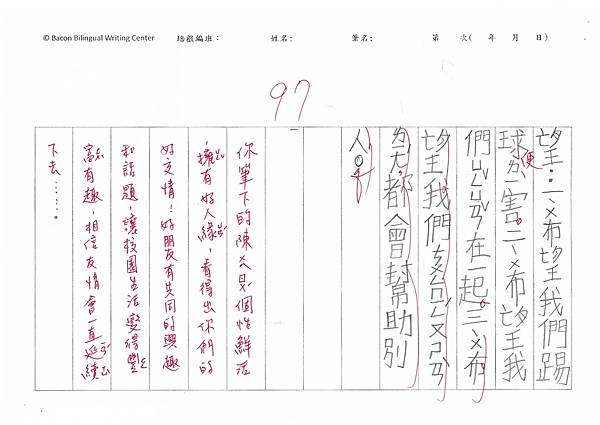 © Bacon Bilingual Writing Center 培根編班： 姓名： 筆名： 第 次( 年 月 日)
97
望：一、希望我們踢
球不便害二、希望我
們ㄙㄥ在一起。三、希
望我們
都會幫助別
人。
你筆下的陳 個性鮮活
，擁有好人緣，看得出你們的
好交情！好朋友有共同的興趣
和話題，讓校園生活變得豐
富有趣，相信友情會一直延續
下去……。